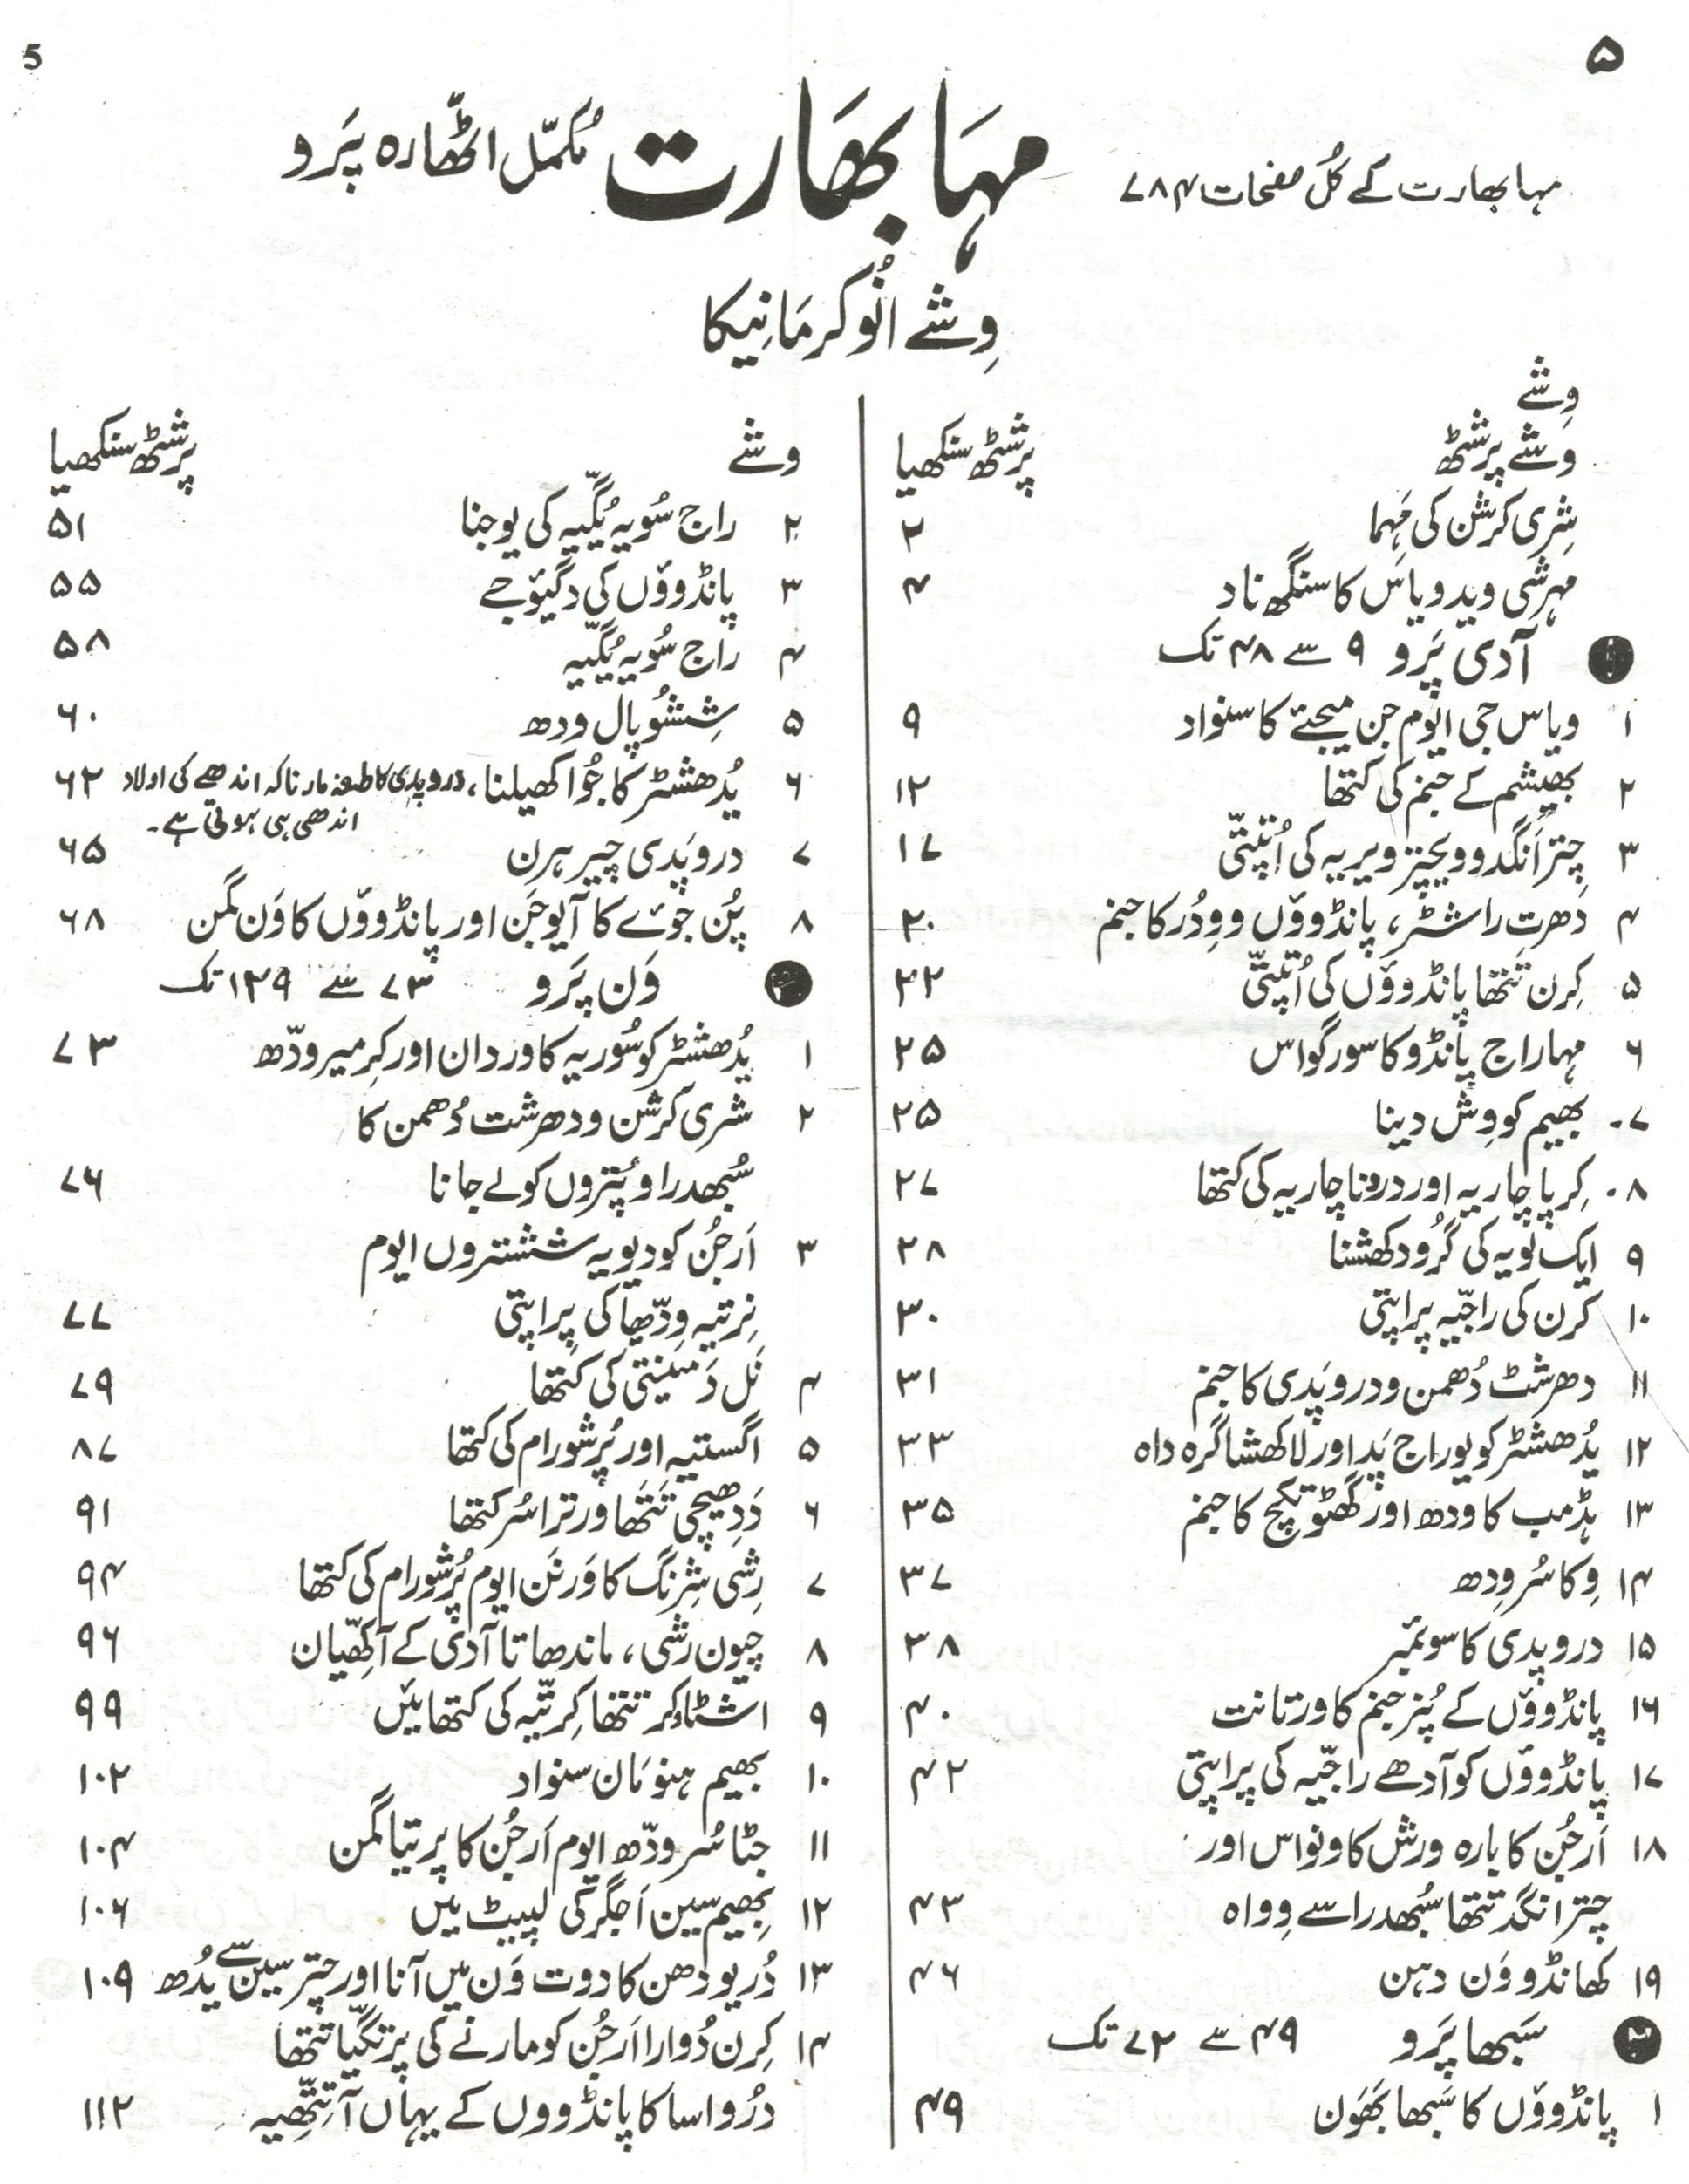 5
۵
مہا بھارت کے کُل صفحات ۷۸۴
مہَا بھَارت مُکمّل اٹھّارہ پَرو
وِشے انُوکرمَانِیکا
وِشے
وشے پرشٹھ پرشٹھ سنکھیا
شِری کرشن کی مَہِما ۲
مہرشی ویدویاس کا سنگھ ناد ۴
۱ آدی پَرو ۹ سے ۴۸ تک
۱ ویاس جی ایوم جن میجئے کا سنواد ۹
۲ بھیشم کے جنم کی کتھا ۱۲
۳ چِتراَنگدو ویچِتر ویریہ کی اُتپتّی ۱۷
۴ دَھرتِ راشٹر، پانڈووٗں و وِدُر کا جنم ۲۰
۵ کِرن تتھا پانڈووٗں کی اُتپتّی ۲۲
۶ مہاراج پانڈو کا سورگواس ۲۵
۷۔ بھیم کو وِش دینا ۲۵
۸۔ کِرپاچاریہ اور درونا چاریہ کی کتھا ۲۷
۹ ایک لویہ کی گُرو دکھشنا ۲۸
۱۰ کرن کی راجیّہ پراپتی ۳۰
۱۱ دھرشٹ دُھمن و دروپَدی کا جنم ۳۱
۱۲ یُدھشٹر کو یوراج پَد اور لاکھشا گرہ داہ ۳۳
۱۳ ہڈمب کا ودھ اور گھٹوتکچ کا جنم ۳۵
۱۴ وِکاسُر وِدھ ۳۷
۱۵ دروپدی کا سوئمبر ۳۸
۱۶ پانڈووٗں کے پُنر جنم کا ورتانت ۴۰
۱۷ پانڈووٗں کو آدھے راجیّہ کی پراپتی ۴۲
۱۸ اَرجُن کا بارہ ورش کا ونواس اور
چترانگد تتھا سُبھدرا سے وِواہ ۴۳
۱۹ کھانڈو وَن دہن ۴۶
۲ سَبھا پَرو ۴۹ سے ۷۲ تک
۱ پانڈووٗں کا سَبھا بھَوَن ۴۹
وشے پرشٹھ سنکھیا
۲ راج سُویہ یُگیّہ کی یوجنا ۵۱
۳ پانڈووٗں کی دگیوٗجے ۵۵
۴ راج سُویہ یُگیّہ ۵۸
۵ شِشُوپال ودھ ۶۰
۶ یُدھشٹر کا جُوا کھیلنا، دروپدی کا طعنہ مارنا کہ اندھے کی اولاد ۶۲
اندھی ہی ہوتی ہے۔
۷ دروپَدی چیر ہرن ۶۵
۸ پُن جوئے کا آیوجَن اور پانڈووٗں کا وَن گمن ۶۸
۳ وَن پَرو ۷۳ سے ۱۲۹ تک
۱ یُدھشٹر کو سُوریہ کا وردان اور کِرمیر ودّھ ۷۳
۲ شری کرشن و دھرشت دُھمن کا
سُبھدرا و پُتروں کو لے جانا ۷۶
۳ اَرجُن کو دیویہ ششتروں ایوم
نِرتیہ وِدّھیا کی پراپتی ۷۷
۴ نَل دَمینتی کی کتھا ۷۹
۵ اگستیہ اور پُرشورام کی کتھا ۸۷
۶ دَدِھیچی تتَھا ورتراسُر کتھا ۹۱
۷ رِشی شِرنگ کا وَرنَن ایوم پُرشورام کی کتھا ۹۴
۸ چیون رشی، ماندھاتا آدی کے آکھیّان ۹۶
۹ اشٹاوکر تتھا کِرتیّہ کی کتھائیں ۹۹
۱۰ بھیم ہنومَان سنواد ۱۰۲
۱۱ جٹاسُر ودّھ ایوم اَرجُن کا پرتیاگمن ۱۰۴
۱۲ بِھیم سین اَجگر کی لپیٹ میں ۱۰۶
۱۳ دُریودھن کا دوت وَن میں آنا اور چتر سین سے یُدھ ۱۰۹
۱۴ کِرن دُوارا اَرجُن کو مارنے کی پرتگیّا تتھا
درُواسا کا پانڈووں کے یہاں آتِتِھّیہ ۱۱۲